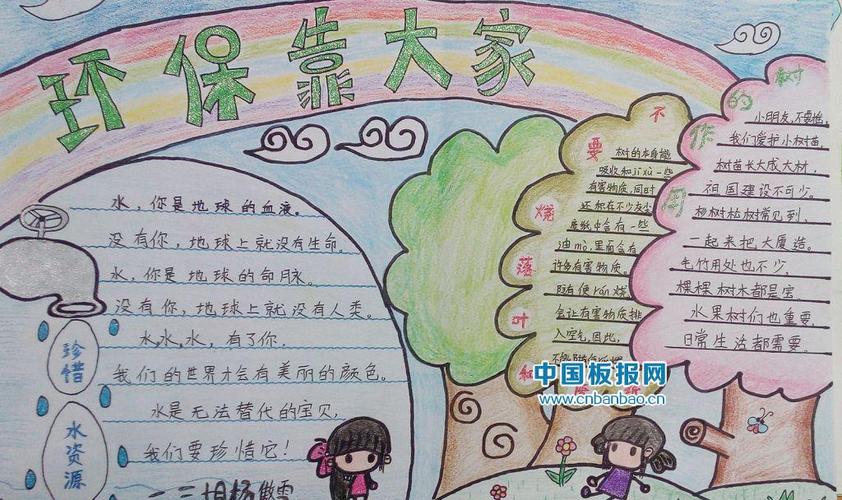 环保靠大家
水,你是地球的血液。
没有你,地球上就没有生命。
水,你是地球的命脉。
没有你,地球上就没有人类。
水,水,水,有了你,
我们的世界才会有美丽的颜色。
水是无法替代的宝贝,
我们要珍惜它!
珍惜
水资源
不要烧落叶和
树的本身能
吸收和jī xù一些
有害物质,同时
不少灰尘
废纸中含有一些
油mò,里面含有
许多有害物质。
rán烧
会让有害物质排
入空气,因此,
树的作用
小朋友,不要摇,
我们爱护小树苗,
树苗长大成大材,
祖国建设不可少。
杨树松树常见到,
一起来把大厦造。
毛竹用处也不少,
棵棵树木都是宝,
水果树们也重要,
日常生活都需要。
中国板报网
www.cnbanbao.cn